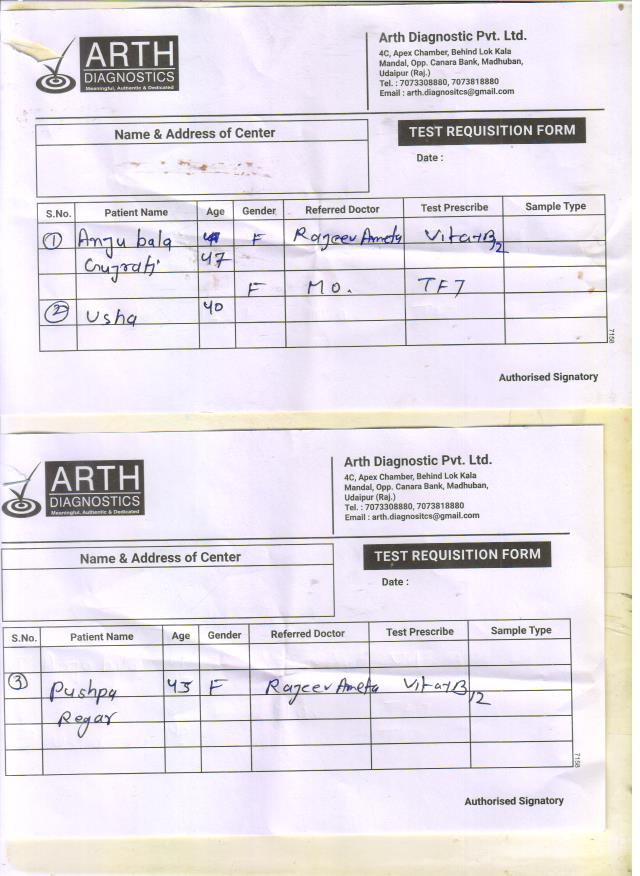 ARTH
DIAGNOSTICS
Meaningful, Authentic & Dedicated
Arth Diagnostic Pvt. Ltd.
4C, Apex Chamber, Behind Lok Kala
Mandal, Opp. Canara Bank, Madhuban,
Udaipur (Raj.)
Tel. : 7073308880, 7073818880
Email : arth.diagnositcs@gmail.com
Name & Address of Center
TEST REQUISITION FORM
Date :
S.No. Patient Name Age Gender Referred Doctor Test Prescribe Sample Type
1 Anju bala F Rajeev Ameta Vita-B12
Gujrati 47
F MO. TF7
2 Usha 40
7158
Authorised Signatory
ARTH
DIAGNOSTICS
Meaningful, Authentic & Dedicated
Arth Diagnostic Pvt. Ltd.
4C, Apex Chamber, Behind Lok Kala
Mandal, Opp. Canara Bank, Madhuban,
Udaipur (Raj.)
Tel. : 7073308880, 7073818880
Email : arth.diagnositcs@gmail.com
Name & Address of Center
TEST REQUISITION FORM
Date :
S.No. Patient Name Age Gender Referred Doctor Test Prescribe Sample Type
3 Pushpa 45 F Rajeev Ameta Vita-B12
Regar
7158
Authorised Signatory